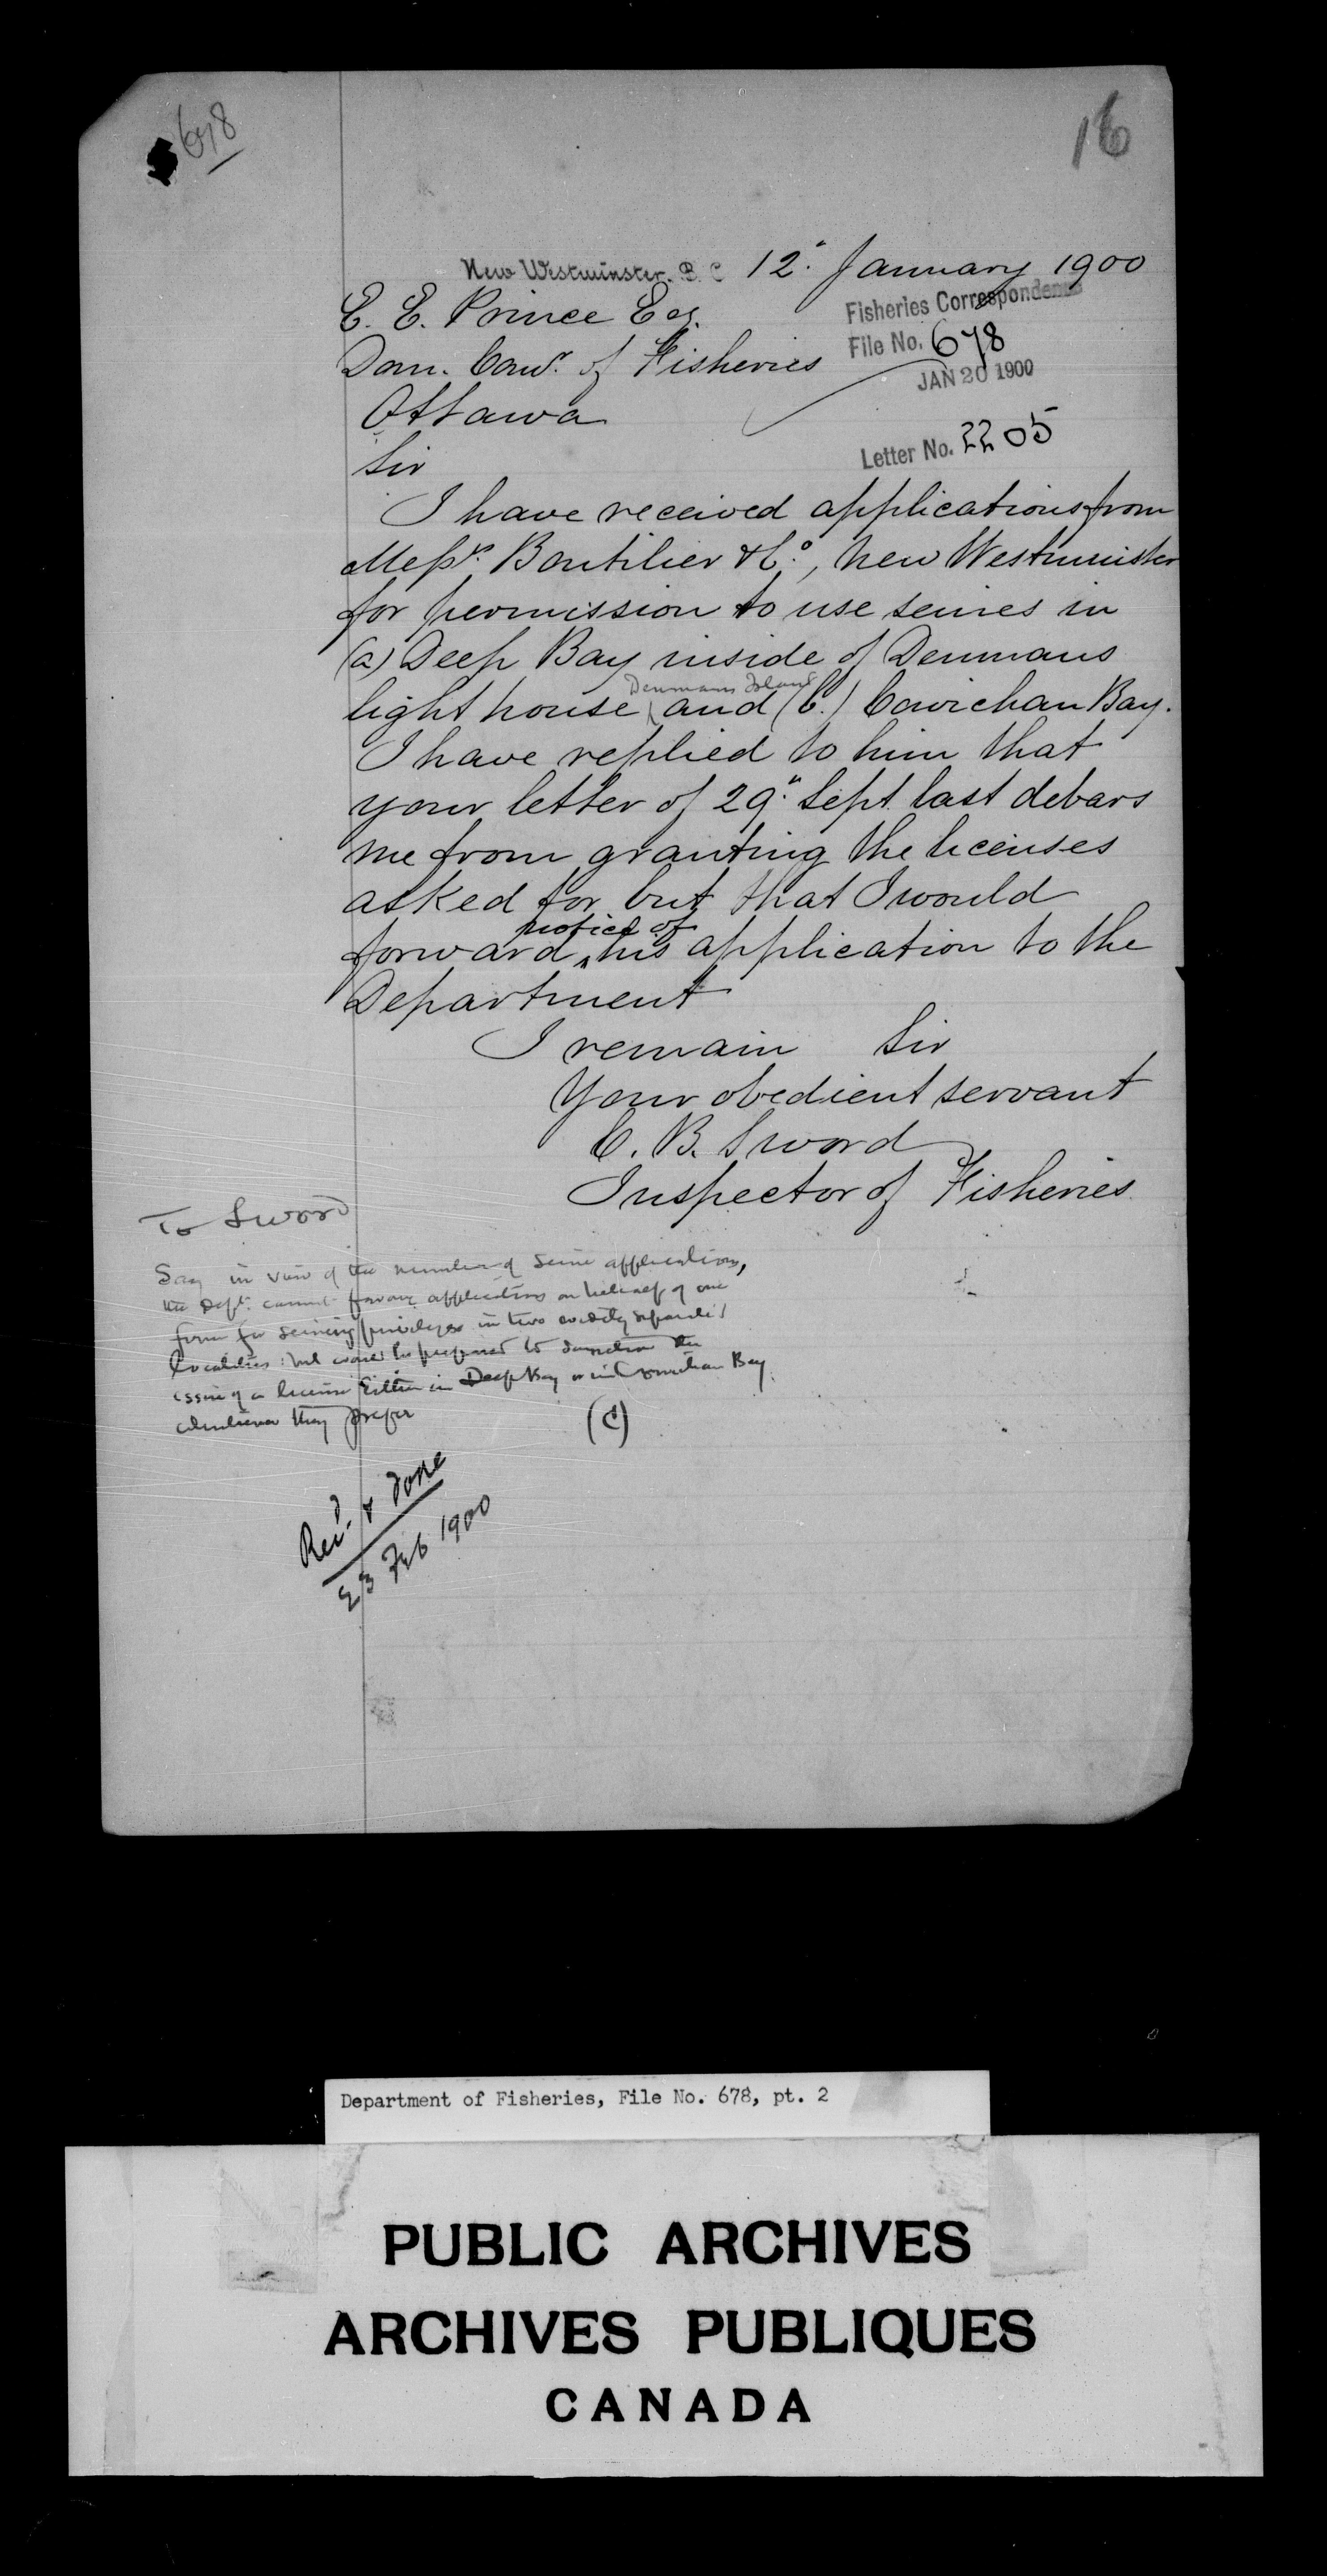 678
16
New Westminster, B. C 12" January 1900
E. E. Prince Esq.
Fisheries Correspondence
Dom. Comr. of Fisheries
File No. 678
JAN 20 1900
Ottawa
Letter No. 2205
Sir
I have received applications from
Messrs. Boutilier & Co, New Westminster
for permission to use seines in
(a) Deep Bay inside of Denmans
Denmans Island
light house and (b.) Cowichan Bay.
I have replied to him that
your letter of 29" Sept. last debars
me from granting the licenses
asked for but that I would
notice of
forward his application to the
Department
I remain Sir
Your obedient servant
C. B. Sword
Inspector of Fisheries
To Sword
Say in view of the number of seine applications,
the Dept. cannot favour applications on behalf of one
firm for seining privileges in two widely separated
localities: but would be prepared to sanction the
issue of a license either in Deep Bay or in Cowichan Bay
whichever they prefer
(C)
Recd. & done
23 Feb 1900
Department of Fisheries, File No. 678, pt. 2
PUBLIC ARCHIVES
ARCHIVES PUBLIQUES
CANADA